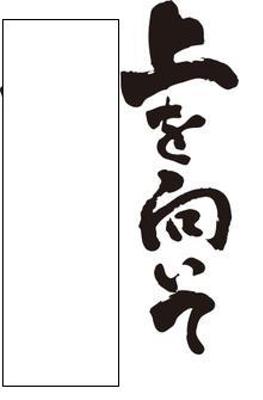 上を向いて